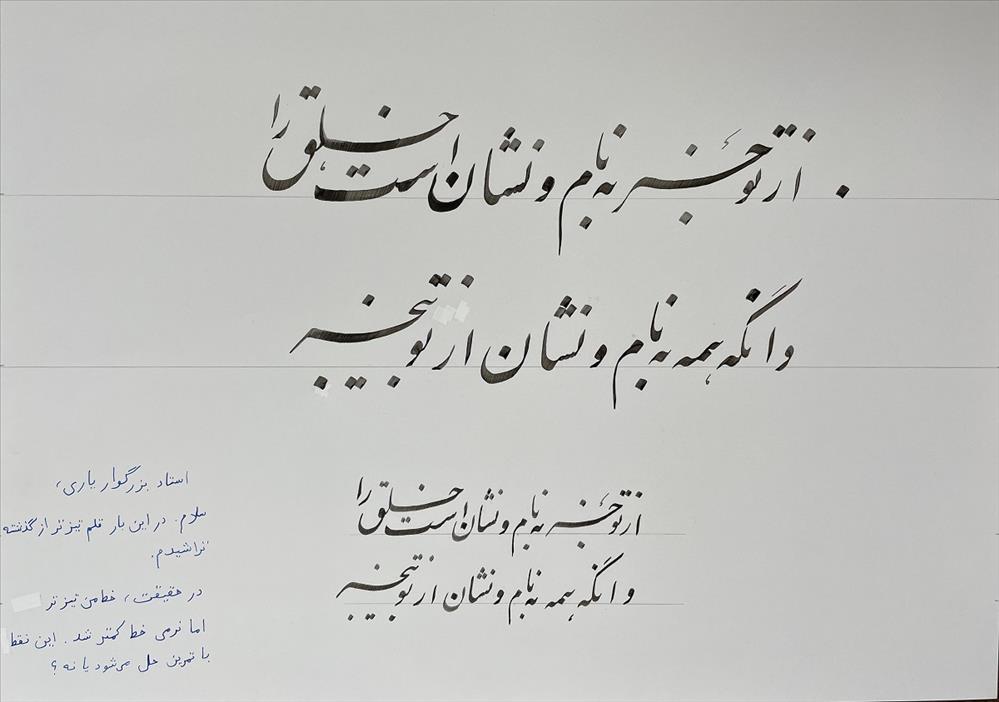 از تو خبر به نام و نشان است خلق را
وانگه همه به نام و نشان از تو بیخبر
از تو خبر به نام و نشان است خلق را
وانگه همه به نام و نشان از تو بیخبر
استاد بزرگوار یاری،
سلام. در این بار قلم تیزتر از گذشته
تراشیدم.
در حقیقت، خط من تیزتر
اما نرمی خط کمتر شد. این نقط
با تمرین حل می‌شود یا نه؟